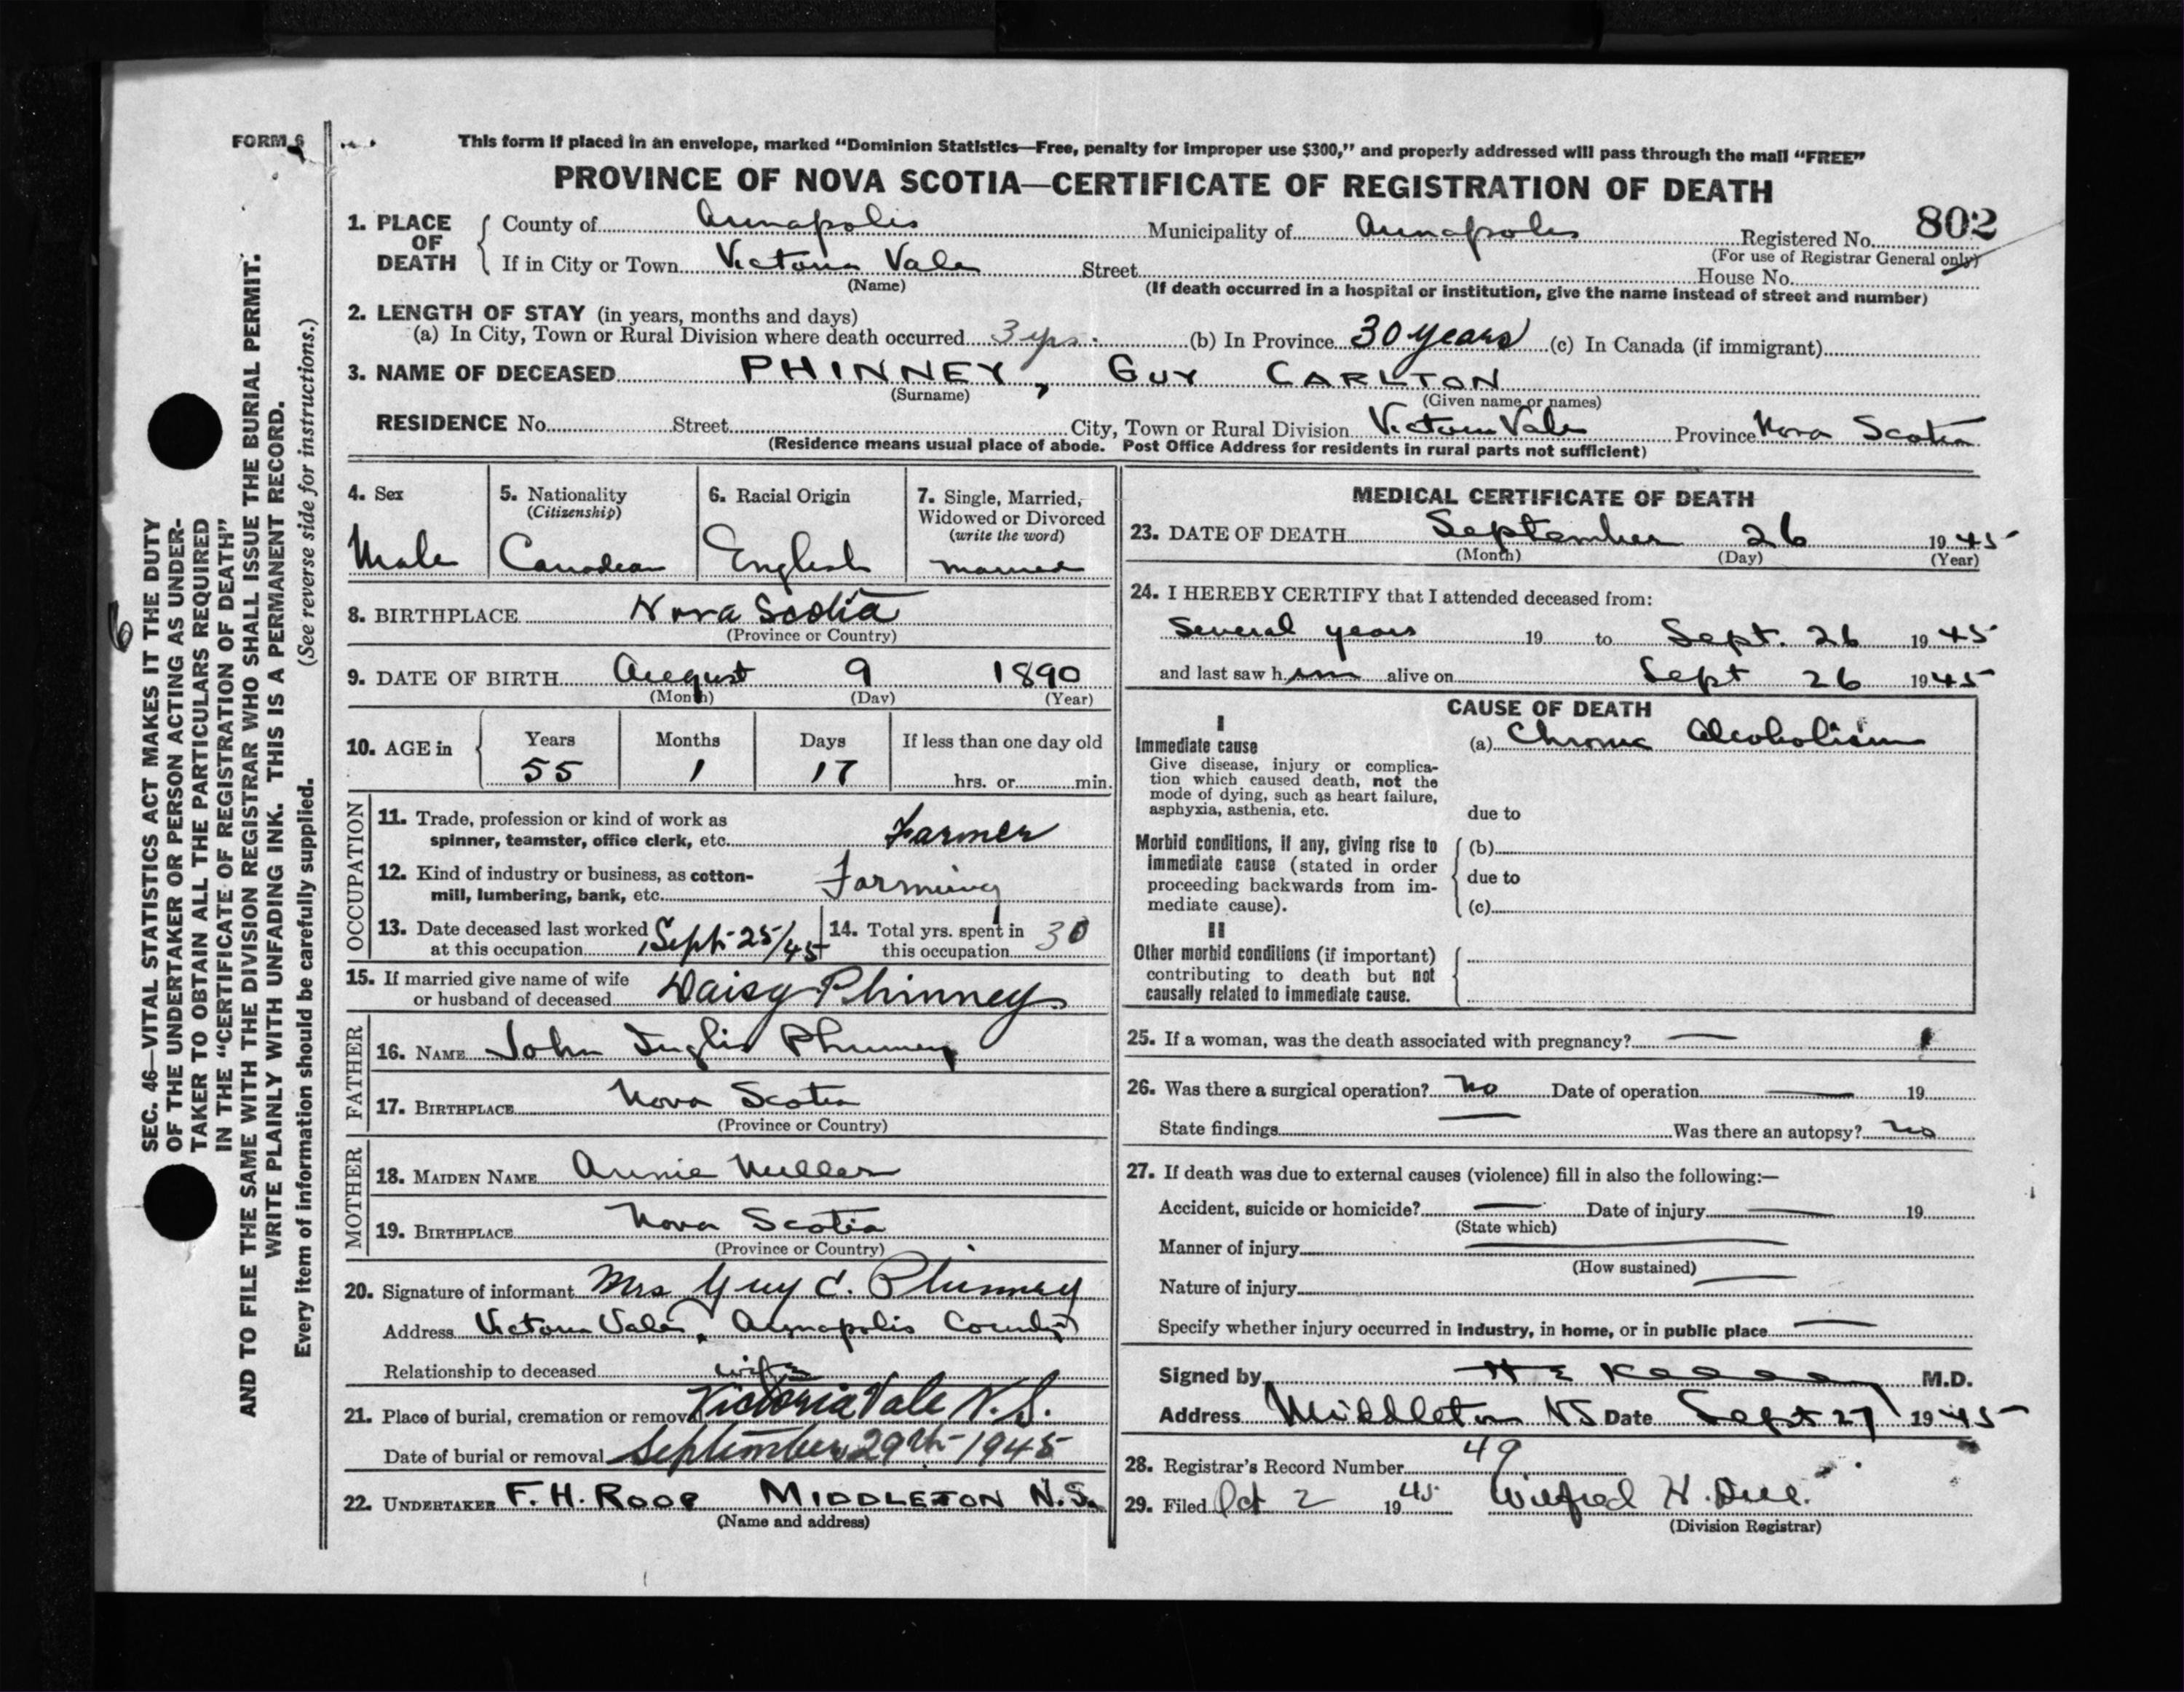 FORM 6
This form if placed in an envelope, marked "Dominion Statistics—Free, penalty for improper use $300," and properly addressed will pass through the mail "FREE"
PROVINCE OF NOVA SCOTIA—CERTIFICATE OF REGISTRATION OF DEATH
802
1. PLACE OF DEATH
County of Annapolis Municipality of Annapolis Registered No.
(For use of Registrar General only)
If in City or Town Victoria Vale Street House No.
(Name) (If death occurred in a hospital or institution, give the name instead of street and number)
2. LENGTH OF STAY (in years, months and days)
(a) In City, Town or Rural Division where death occurred 3 yrs. (b) In Province 30 years (c) In Canada (if immigrant)
3. NAME OF DECEASED PHINNEY, GUY CARLTON
(Surname) (Given name or names)
RESIDENCE No. Street City, Town or Rural Division Victoria Vale Province Nova Scotia
(Residence means usual place of abode. Post Office Address for residents in rural parts not sufficient)
4. Sex
Male
5. Nationality
(Citizenship)
Canadian
6. Racial Origin
English
7. Single, Married,
Widowed or Divorced
(write the word)
married
8. BIRTHPLACE Nova Scotia
(Province or Country)
9. DATE OF BIRTH August 9 1890
(Month) (Day) (Year)
10. AGE in
Years Months Days If less than one day old
55 1 17 hrs. or min.
OCCUPATION
11. Trade, profession or kind of work as
spinner, teamster, office clerk, etc. Farmer
12. Kind of industry or business, as cotton-
mill, lumbering, bank, etc. Farming
13. Date deceased last worked
at this occupation Sept 25/45
14. Total yrs. spent in
this occupation 30
15. If married give name of wife
or husband of deceased Daisy Phinney
FATHER
16. NAME John Inglis Phinney
17. BIRTHPLACE Nova Scotia
(Province or Country)
MOTHER
18. MAIDEN NAME Annie Miller
19. BIRTHPLACE Nova Scotia
(Province or Country)
20. Signature of informant Mrs Guy C. Phinney
Address Victoria Vale, Annapolis County
Relationship to deceased wife
21. Place of burial, cremation or removal Victoria Vale N.S.
Date of burial or removal September 29th 1945
22. UNDERTAKER F.H. ROOP MIDDLETON N.S.
(Name and address)
MEDICAL CERTIFICATE OF DEATH
23. DATE OF DEATH September 26 1945
(Month) (Day) (Year)
24. I HEREBY CERTIFY that I attended deceased from:
Several years 19 to Sept. 26 1945
and last saw him alive on Sept 26 1945
CAUSE OF DEATH
I
Immediate cause
Give disease, injury or complica-
tion which caused death, not the
mode of dying, such as heart failure,
asphyxia, asthenia, etc.
(a) Chronic Alcoholism
due to
Morbid conditions, if any, giving rise to
immediate cause (stated in order
proceeding backwards from im-
mediate cause).
(b)
due to
(c)
II
Other morbid conditions (if important)
contributing to death but not
causally related to immediate cause.
25. If a woman, was the death associated with pregnancy? —
26. Was there a surgical operation? no Date of operation — 19
State findings — Was there an autopsy? no
27. If death was due to external causes (violence) fill in also the following:—
Accident, suicide or homicide? — Date of injury — 19
(State which)
Manner of injury —
(How sustained)
Nature of injury —
Specify whether injury occurred in industry, in home, or in public place —
Signed by H E M.D.
Address Middleton NS Date Sept 27 1945
28. Registrar's Record Number 49
29. Filed Oct 2 1945 Wilfred H.
(Division Registrar)
6
SEC. 46—VITAL STATISTICS ACT MAKES IT THE DUTY
OF THE UNDERTAKER OR PERSON ACTING AS UNDER-
TAKER TO OBTAIN ALL THE PARTICULARS REQUIRED
IN THE "CERTIFICATE OF REGISTRATION OF DEATH"
AND TO FILE THE SAME WITH THE DIVISION REGISTRAR WHO SHALL ISSUE THE BURIAL PERMIT.
WRITE PLAINLY WITH UNFADING INK. THIS IS A PERMANENT RECORD.
Every item of information should be carefully supplied. (See reverse side for instructions.)